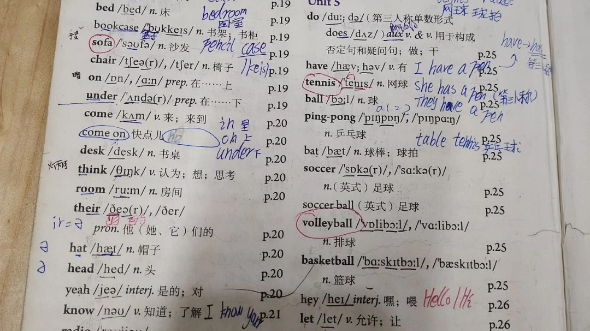 bed /bed/ n. 床 p.19
bedroom
bookcase /'bʊkkeɪs/ n. 书架；书柜 p.19
sofa /'səʊfə/ n. 沙发 p.19
pencil case
chair /tʃeə(r)/, /tʃer/ n. 椅子 p.19
on /ɒn/, /ɑːn/ prep. 在……上 p.19
under /'ʌndə(r)/ prep. 在……下 p.19
come /kʌm/ v. 来；来到 p.20
in 里
come on 快点儿 p.20
on 上
desk /desk/ n. 书桌 p.20
under 下
think /θɪŋk/ v. 认为；想；思考 p.20
room /ruːm/ n. 房间 p.20
their /ðeə(r)/, /ðer/
pron. 他（她、它）们的 p.20
hat /hæt/ n. 帽子 p.20
head /hed/ n. 头 p.20
yeah /jeə/ interj. 是的；对 p.20
know /nəʊ/ v. 知道；了解 p.21
I know
Unit 5
网球 球拍
do /duː; də/（第三人称单数形式
does /dʌz/）aux v. & v. 用于构成
否定句和疑问句；做；干 p.25
have /hæv; həv/ v. 有 p.25
I have a pen
tennis /'tenɪs/ n. 网球 p.25
she has a pen
ball /bɔːl/ n. 球 p.25
They have a pen
ping-pong /'pɪŋpɒŋ/, /'pɪŋpɑːŋ/
n. 乒乓球 p.25
table tennis
bat /bæt/ n. 球棒；球拍 p.25
soccer /'sɒkə(r)/, /'sɑːkə(r)/
n.（英式）足球 p.25
soccer ball（英式）足球 p.25
volleyball /'vɒlibɔːl/, /'vɑːlibɔːl/
n. 排球 p.25
basketball /'bɑːskɪtbɔːl/, /'bæskɪtbɔːl/
n. 篮球 p.25
hey /heɪ/ interj. 嘿；喂 p.26
Hello / Hi
let /let/ v. 允许；让 p.26